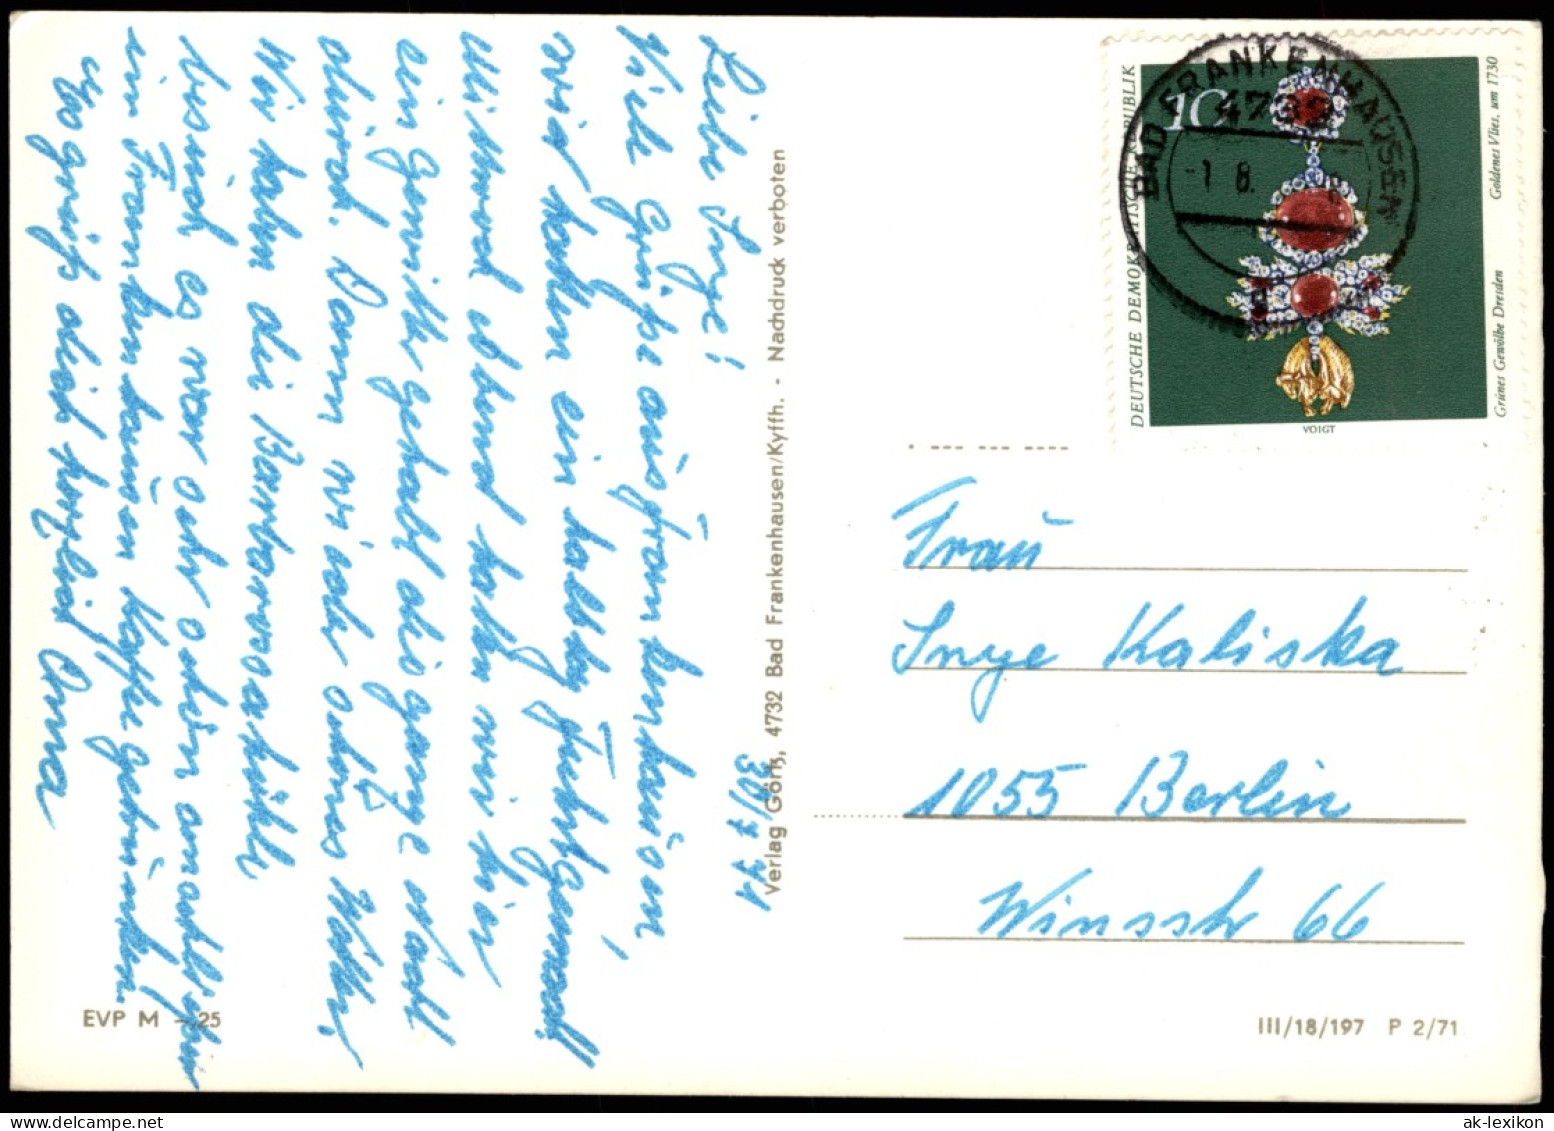 Liebe Inge! 30/7 71
Viele Grüße aus Frankenhausen,
wir haben ein halbtag Fuhrgemach
Mittwoch Abend haben wir hier
ein Gewitter gehabt die ganze Nacht
Dann wieder schönes Wetter,
Wir haben die Barbarossahöhle
besucht es war sehr schön
in Frankenhausen Kaffe getrunken.
grüß dich herzlich
Verlag Görtz, 4732 Bad Frankenhausen/Kyffh. - Nachdruck verboten
EVP M -,25
DEUTSCHE DEMOKRATISCHE REPUBLIK
10
Grünes Gewölbe Dresden Goldenes Vlies, um 1730
VOIGT
BAD FRANKENHAUSEN
4732
-1. 8.
Frau
Inge Kaliska
1055 Berlin
Winsstr 66
III/18/197 P 2/71
ak-lexikon